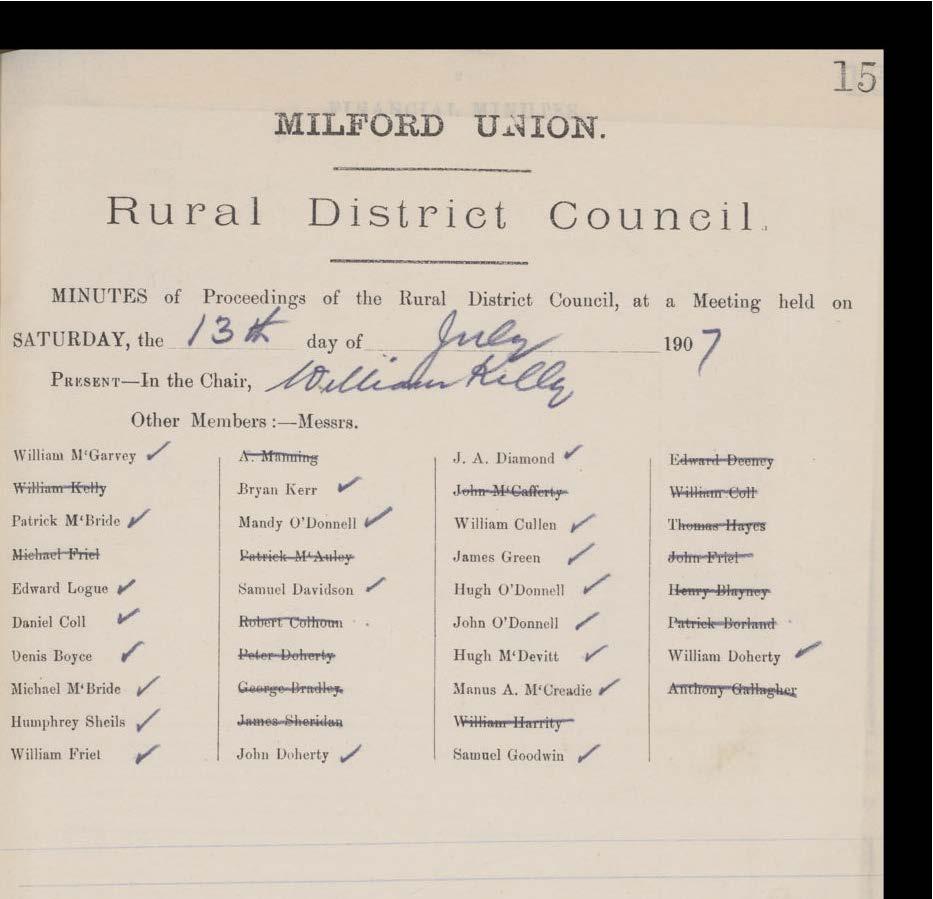 15
MILFORD UNION.
Rural District Council.
MINUTES of Proceedings of the Rural District Council, at a Meeting held on
SATURDAY, the 13th day of July 1907
PRESENT—In the Chair, William Kelly
Other Members :—Messrs.
William M‘Garvey
William Kelly
Patrick M‘Bride
Michael Friel
Edward Logue
Daniel Coll
Denis Boyce
Michael M‘Bride
Humphrey Sheils
William Friel
A. Manning
Bryan Kerr
Mandy O’Donnell
Patrick M‘Auley
Samuel Davidson
Robert Colhoun
Peter Doherty
George Bradley
James Sheridan
John Doherty
J. A. Diamond
John M‘Cafferty
William Cullen
James Green
Hugh O’Donnell
John O’Donnell
Hugh M‘Devitt
Manus A. M‘Creadie
William Harrity
Samuel Goodwin
Edward Deeney
William Coll
Thomas Hayes
John Friel
Henry Blayney
Patrick Borland
William Doherty
Anthony Gallagher